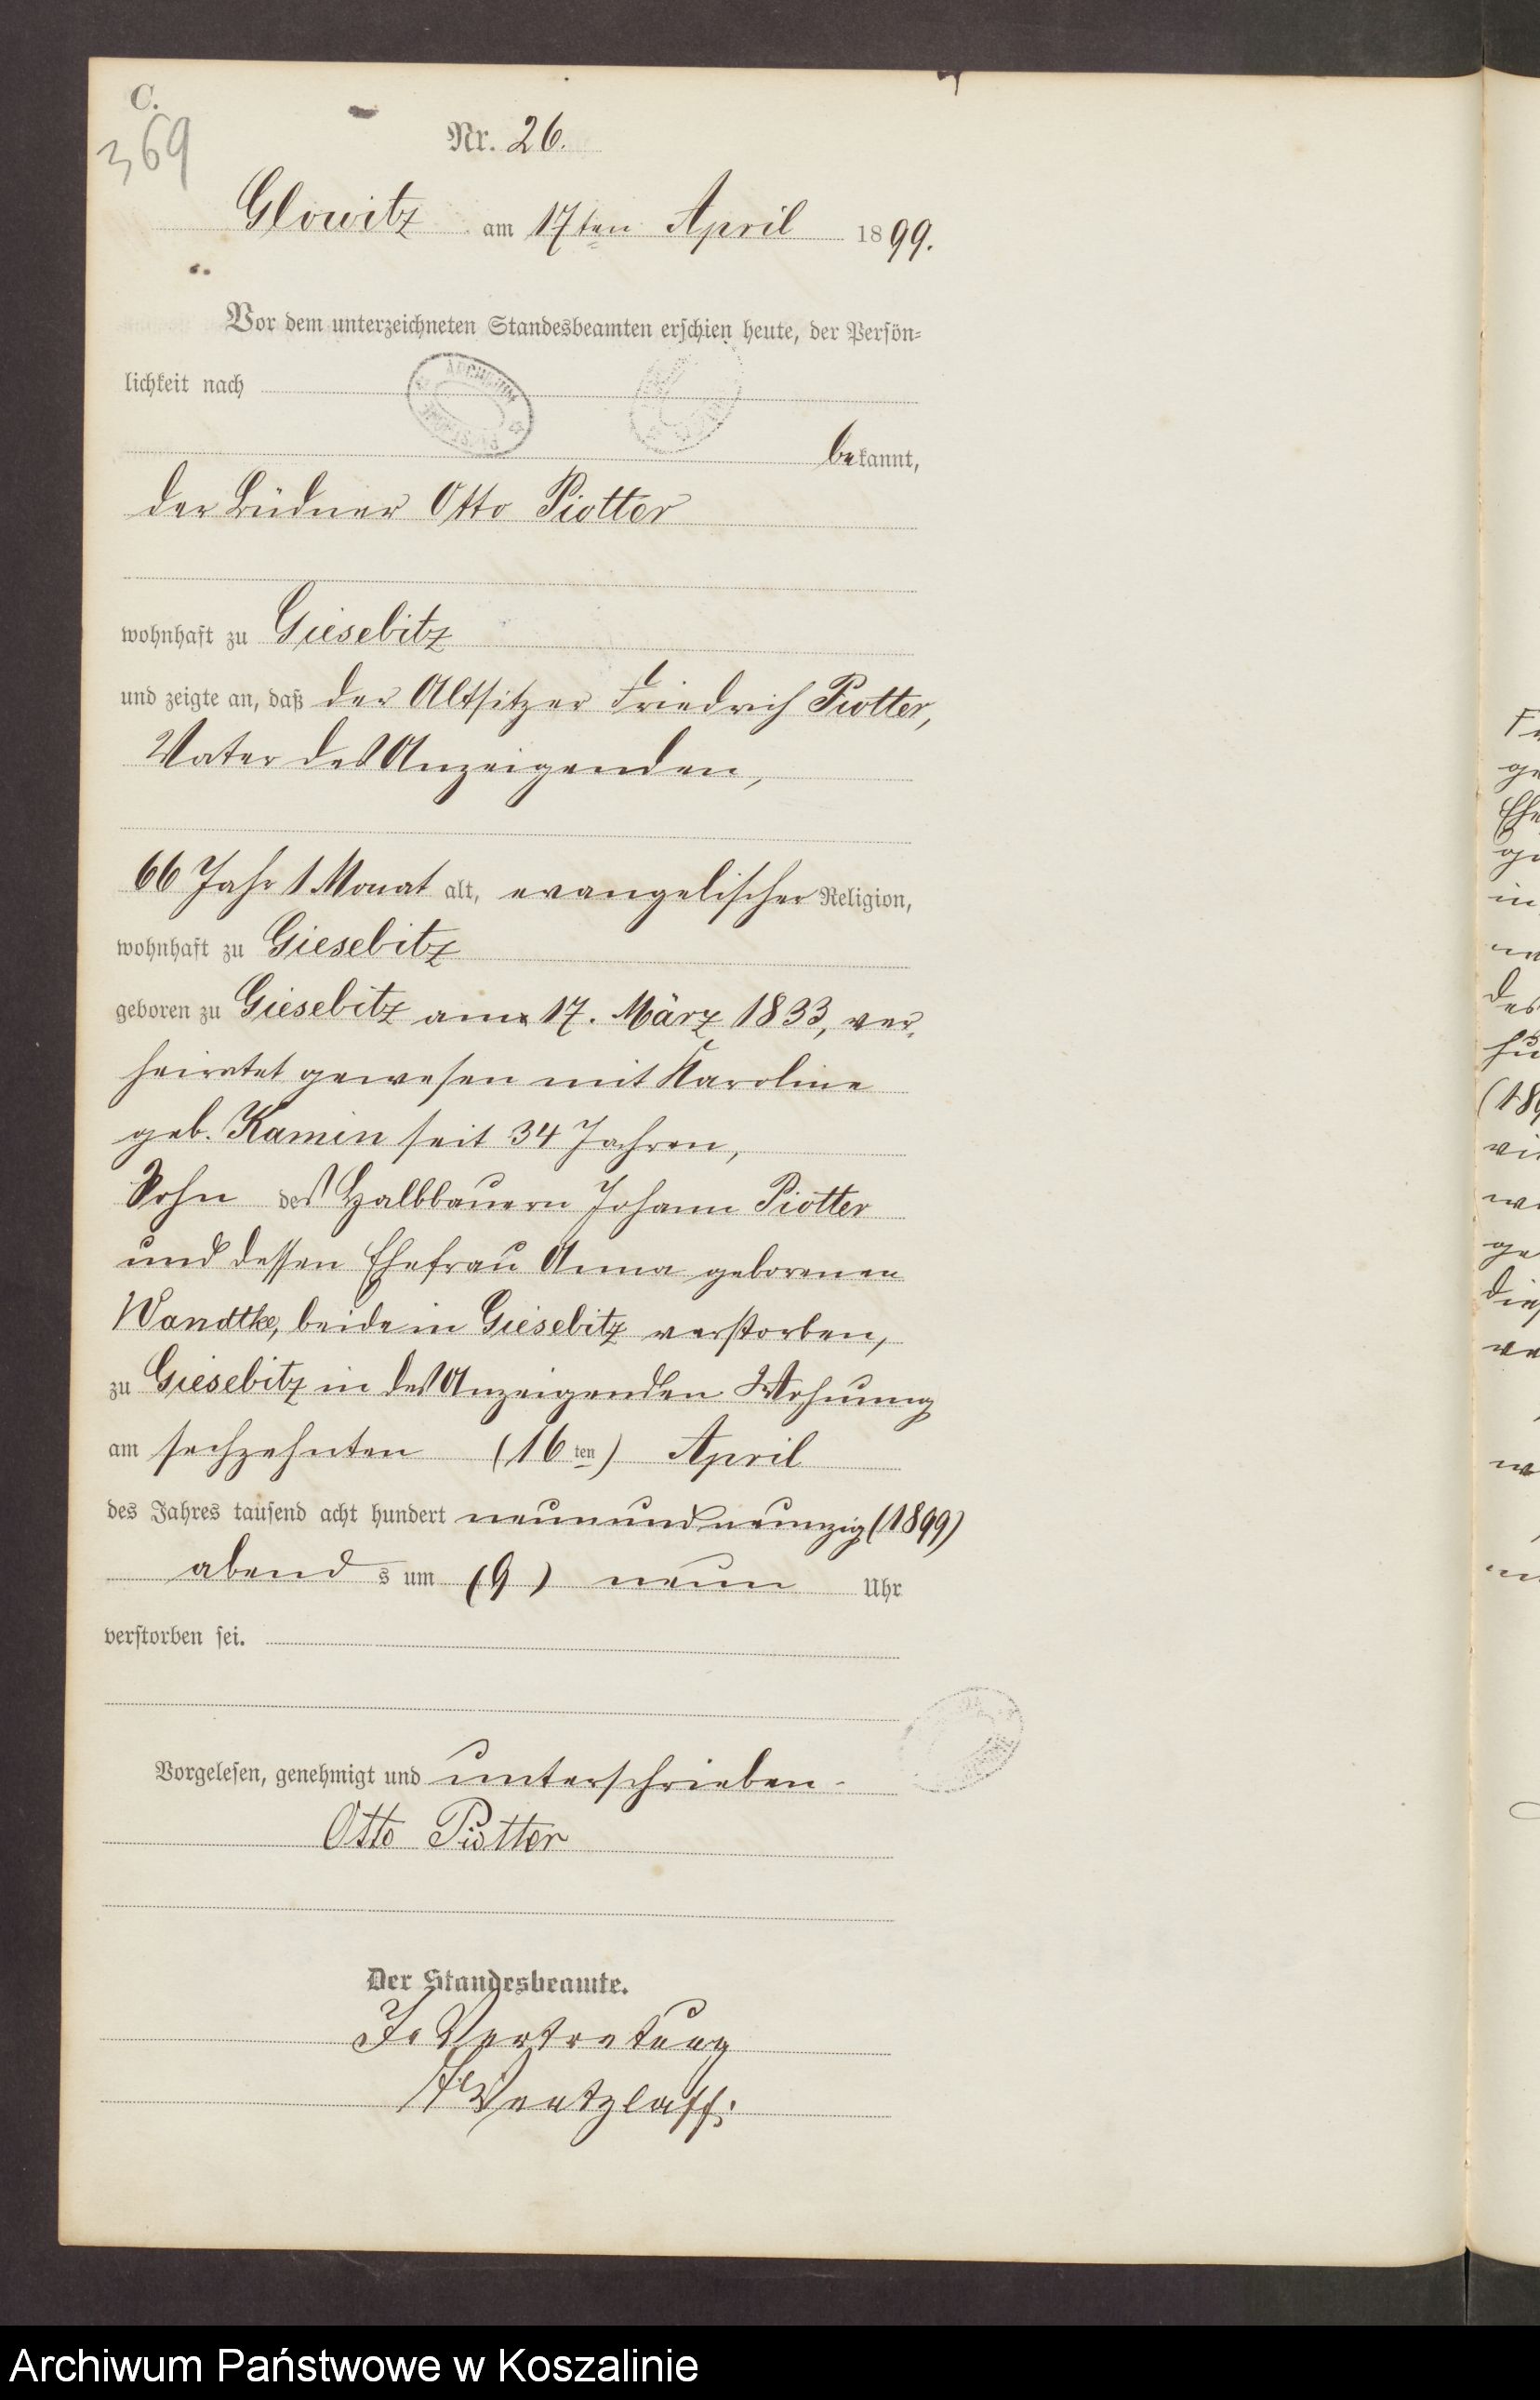 C.
369
Nr. 26.
Glowitz am 17ten April 1899.
Vor dem unterzeichneten Standesbeamten erschien heute, der Persön-
lichkeit nach
ARCHIWUM
bekannt,
der Büdner Otto Piotter
wohnhaft zu Giesebitz
und zeigte an, daß der Altsitzer Friedrich Piotter,
Vater des Anzeigenden,
66 Jahr 1 Monat alt, evangelischer Religion,
wohnhaft zu Giesebitz
geboren zu Giesebitz am 17. März 1833, ver-
heiratet gewesen mit Karoline
geb. Kamin seit 34 Jahren,
Sohn des Halbbauern Johann Piotter
und dessen Ehefrau Anna geborenen
Wandtke, beide in Giesebitz verstorben,
zu Giesebitz in des Anzeigenden Wohnung
am sechzehnten (16ten) April
des Jahres tausend acht hundert neunundneunzig (1899)
abends um (9) neun Uhr
verstorben sei.
Vorgelesen, genehmigt und unterschrieben.
Otto Piotter
Der Standesbeamte.
In Vertretung
Wentzlaff.
Archiwum Państwowe w Koszalinie